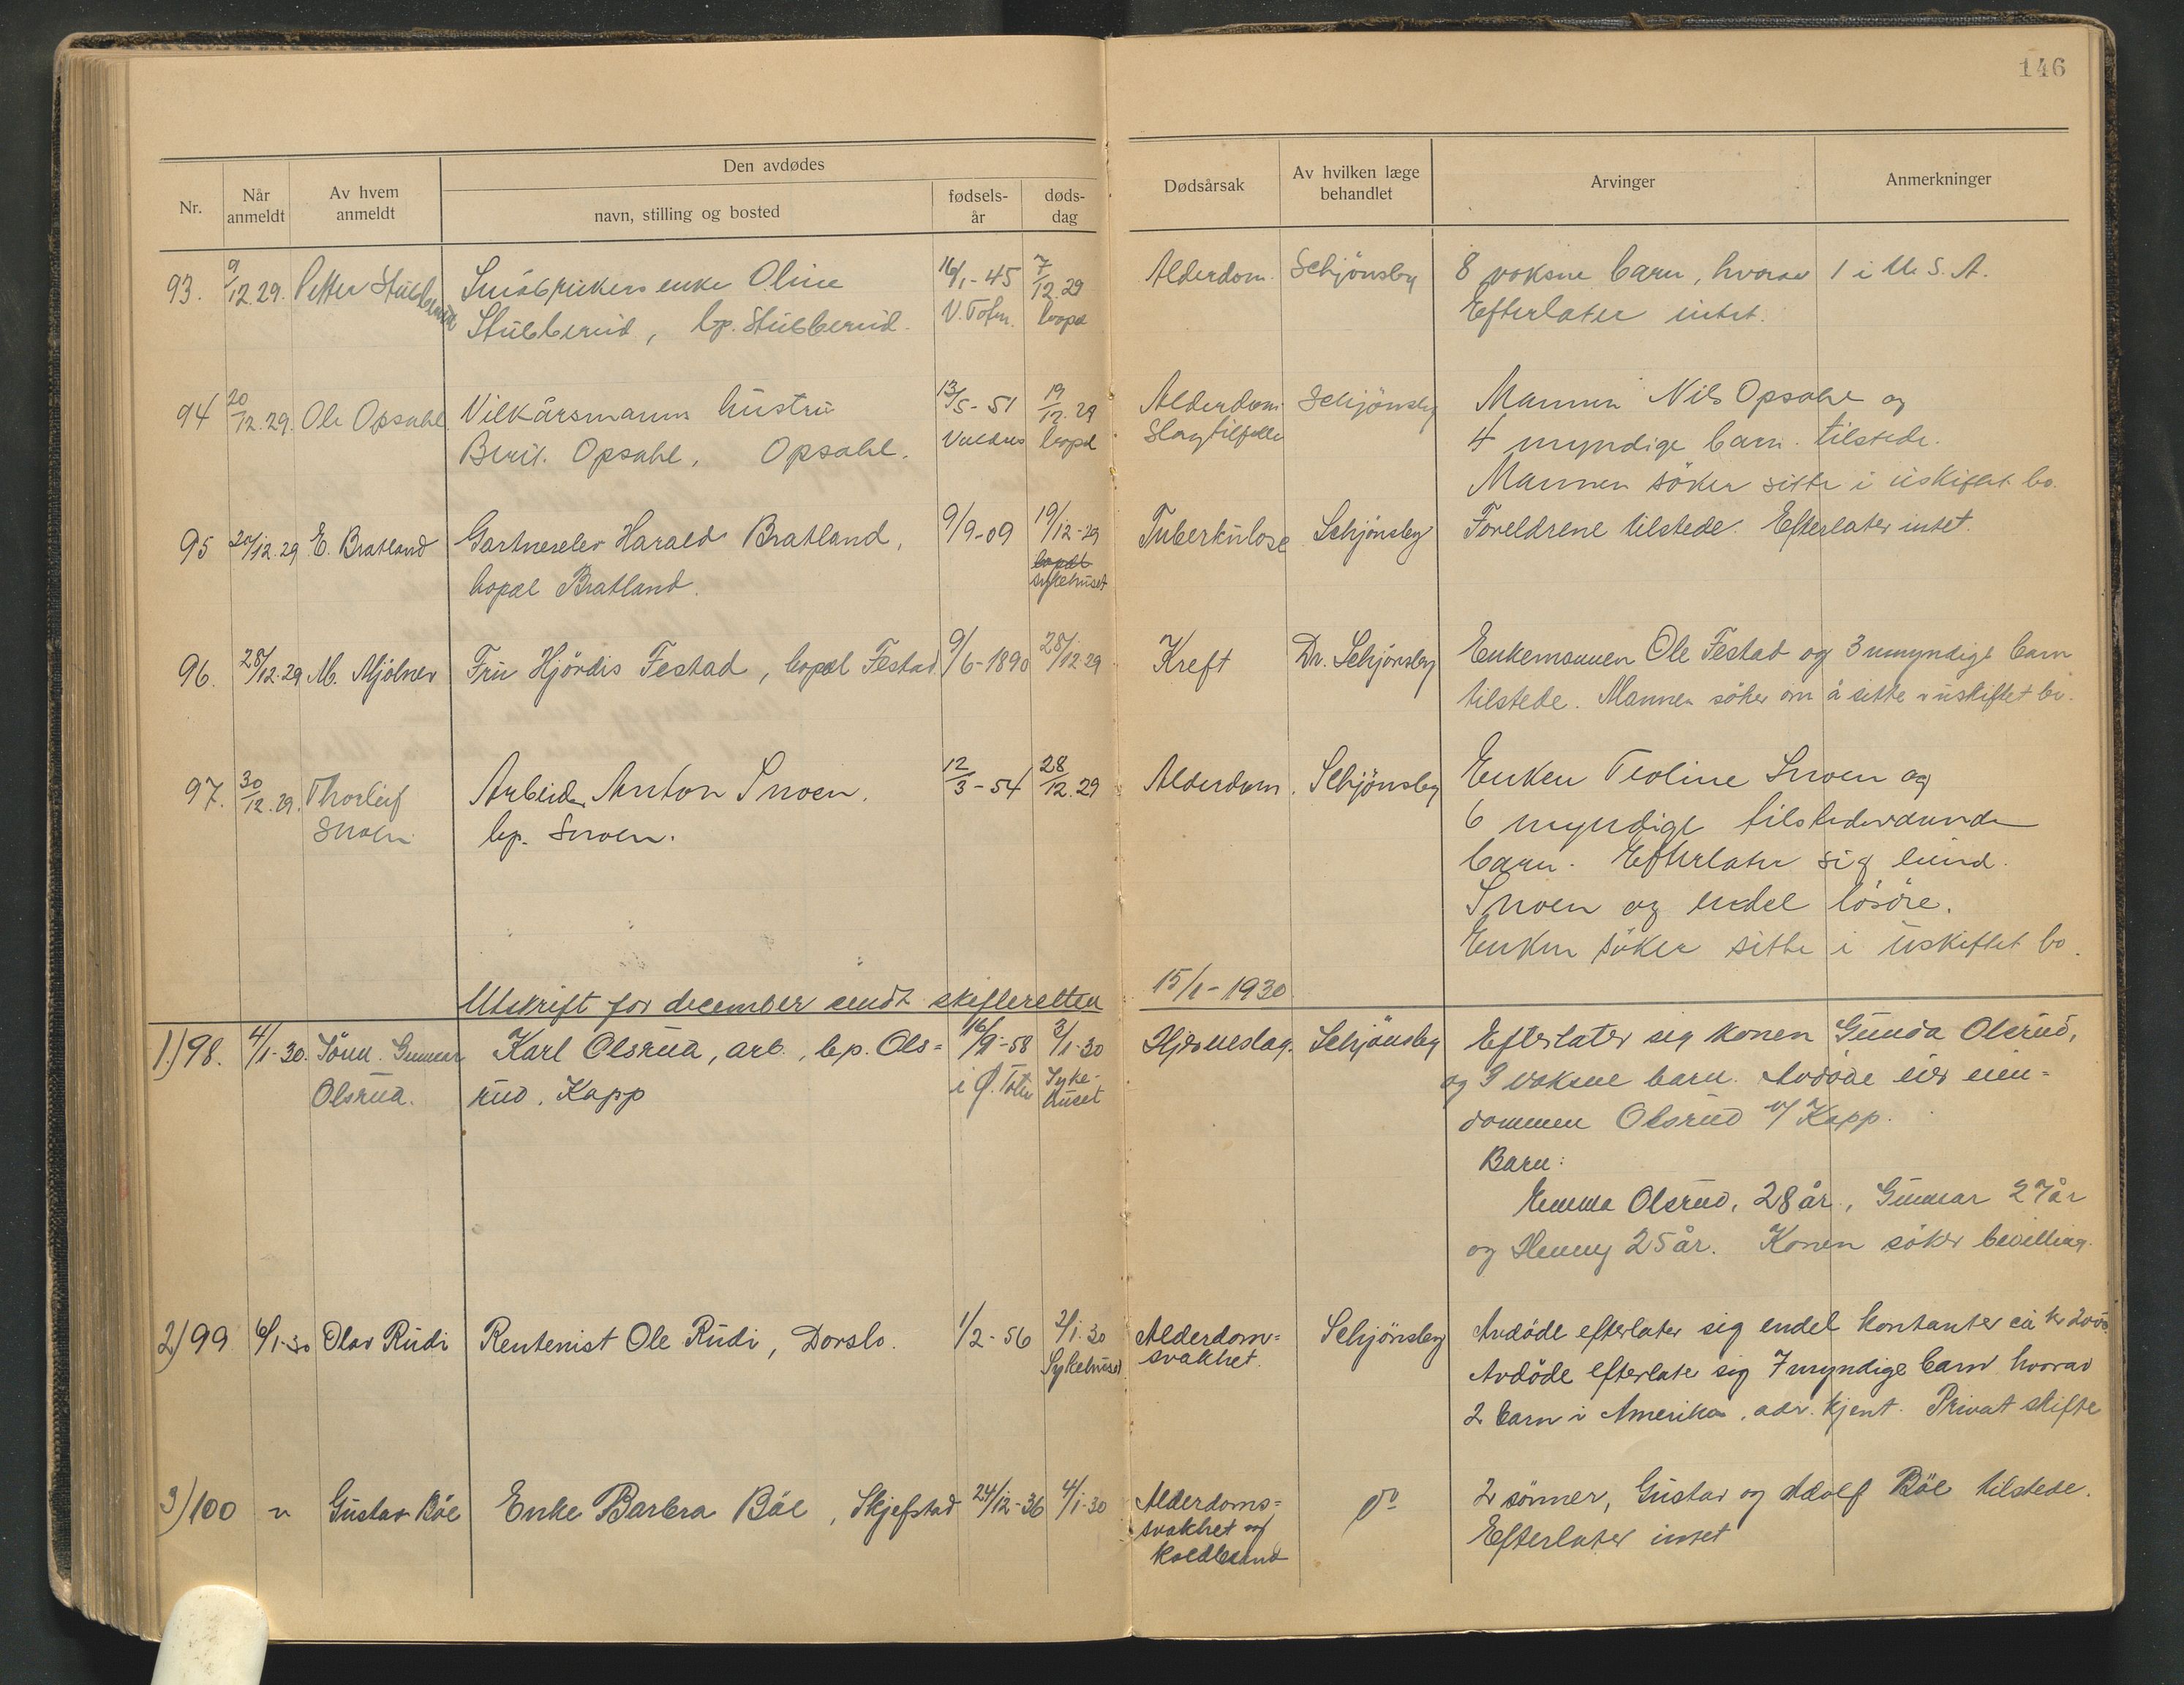 146
Den avdødes
Nr. Når anmeldt Av hvem anmeldt navn, stilling og bosted fødselsår dødsdag Dødsårsak Av hvilken læge behandlet Arvinger Anmerkninger
93. 9/12.29. Petter Stubberud Småbrukers enke Oline 16/1-45 7/12.29 Alderdom. Schjönsby 8 voksne barn, hvorav 1 i U. S. A.
Stubberud, bp. Stubberud. V. Toten. bopæl Efterlater intet.
94 20/12.29. Ole Opsahl. Vilkårsmanns hustru 13/5-51 19/12.29 Alderdom Schjönsby Mannen Nils Opsahl og
Berit Opsahl, Opsahl. Valdres bopæl Slagtilfelle 4 myndige barn tilstede.
Mannen söker sitte i uskiftet bo.
95 20/12.29 E. Bratland Gartnerelev Harald Bratland, 9/9-09 19/12-29 Tuberkulose Schjönsby Foreldrene tilstede. Efterlater intet.
bopæl Bratland. bopæl sykehuset
96. 28/12.29 M. Mjölner Fru Hjördis Festad, bopæl Festad 9/6-1890 28/12.29 Kreft Dr. Schjönsby Enkemannen Ole Festad og 3 umyndige barn
tilstede. Mannen söker om å sitte i uskiftet bo.
97. 30/12.29. Thorleif Arbeider Anton Snoen. 12/3-54 28/12.29 Alderdom. Schjönsby Enken Teoline Snoen og
Snoen bp. Snoen. 6 myndige tilstedeværende
barn. Efterlater sig eiend.
Snoen og endel lösöre.
Enken söker sitte i uskiftet bo.
Utskrift for december sendt skifteretten 15/1-1930
1) 98. 4/1-30. Sönn Gunnar Karl Olsrud, arb., bp. Ols= 3/1-30 Hjerneslag. Schjönsby Efterlater sig konen Gunda Olsrud,
Olsrud. rud. Kapp i Ø. Toten Sykehuset og 3 voksne barn. Avdöde eier eien=
dommen Olsrud v/ Kapp.
Barn:
Emma Olsrud, 28 år, Gunnar 27 år
og Henny 25 år. Konen söker bevilling.
2) 99 6/1-30 Olav Rudi Rentenist Ole Rudi, Dorslo. 1/2-56 2/1.30 Alderdom= Schjönsby Avdöde efterlater sig endel kontanter ca kr 2000.
Sykehuset svakhet. Avdöde efterlater sig 7 myndige barn hvorav
2 barn i Amerika, adr. kjent. Privat skifte
3) 100 " Gustav Böe Enke Barbra Böe, Skjefstad 24/12-36 4/1-30 Alderdoms= do 2 sönner, Gustav og Adolf Böe tilstede.
svakhet og Efterlater intet
koldbrand